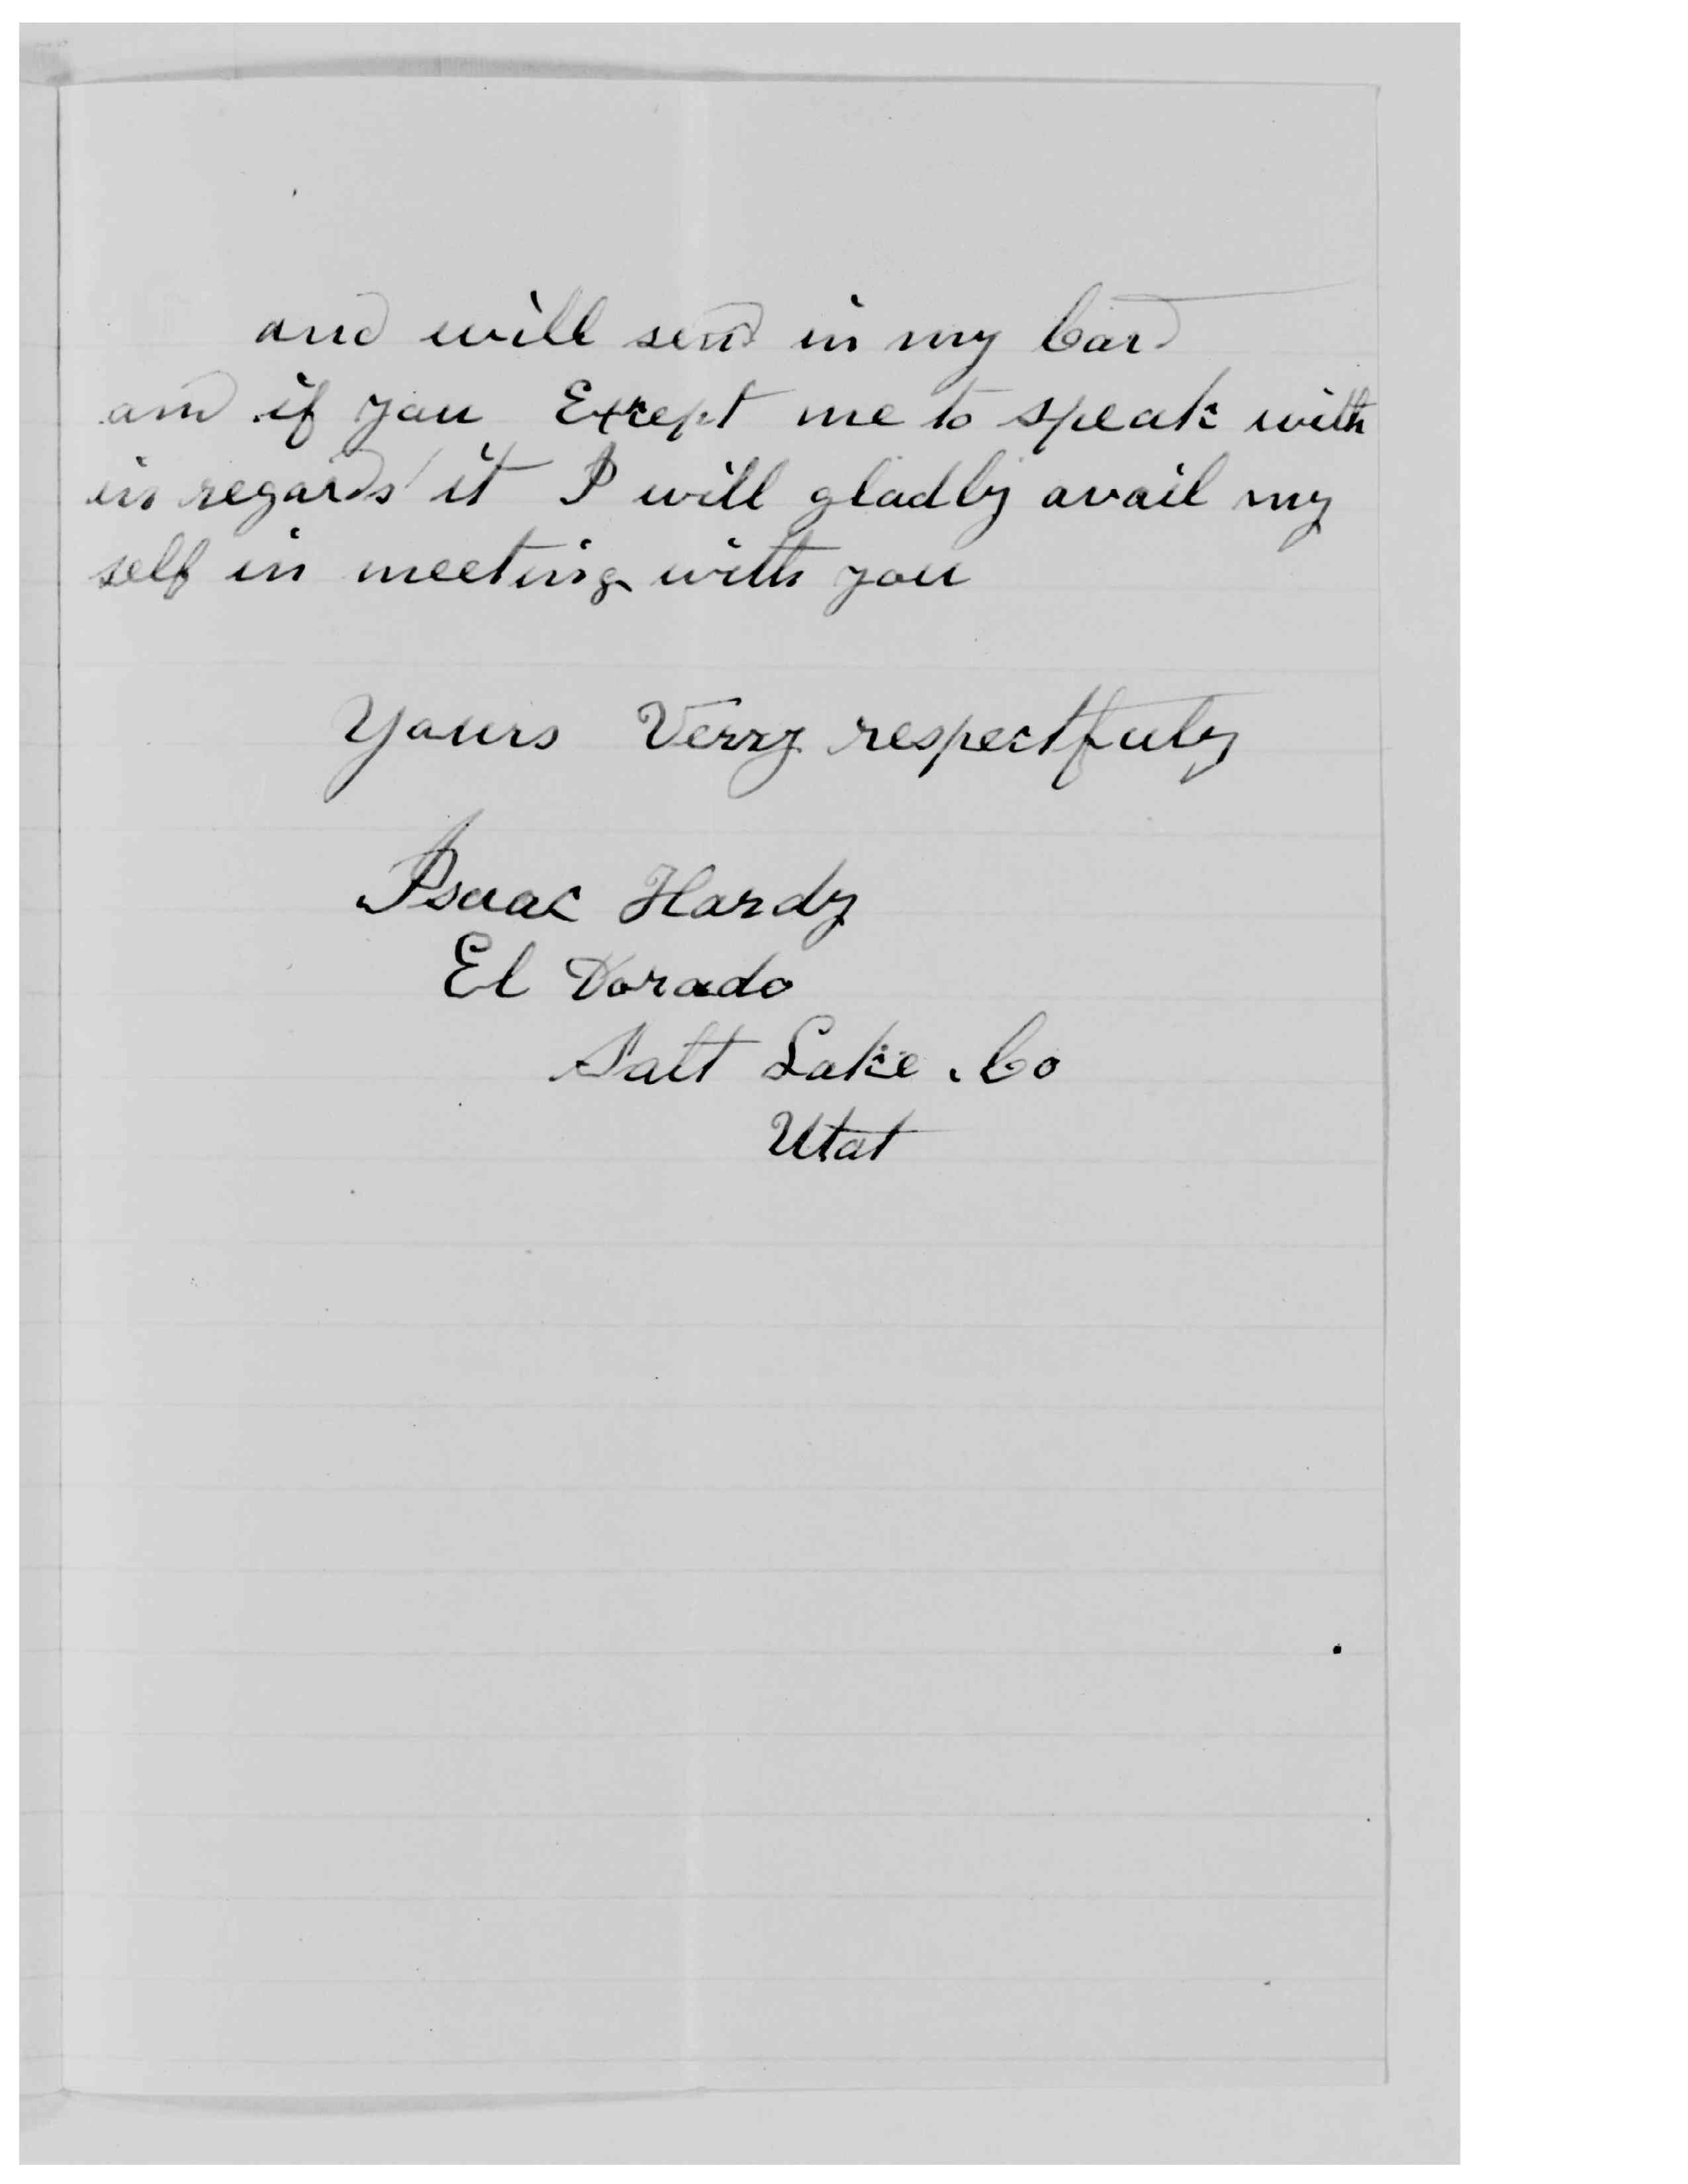 and will send in my Card
and if you Except me to speak with
in regards it I will gladly avail my
self in meeting with you
Yours Verry respectfuly
Isaac Hardy
El Dorado
Salt Lake . Co
Utat